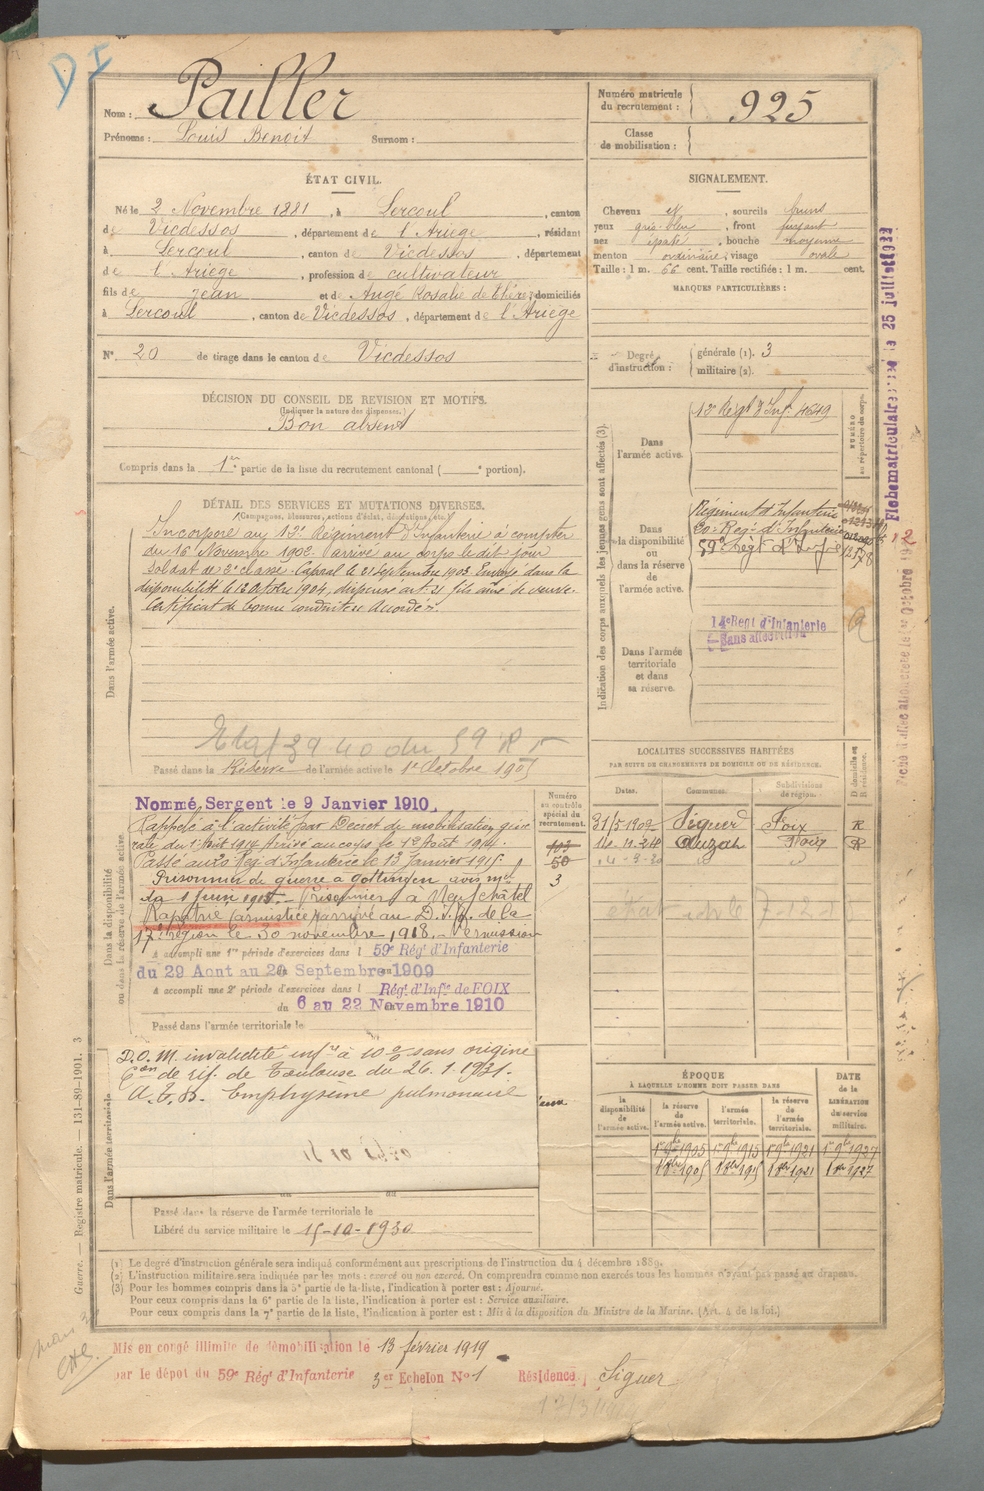 D I
Nom : Pailler
Prénoms : Louis Benoit Surnom :
Numéro matricule du recrutement : 925
Classe de mobilisation :
ÉTAT CIVIL.
Né le 2 Novembre 1881, à Lercoul, canton
de Vicdessos, département de l'Ariège, résidant
à Lercoul, canton de Vicdessos, département
de l'Ariège, profession de cultivateur
fils de Jean et de Augé Rosalie de Thérèse, domiciliés
à Lercoul, canton de Vicdessos, département de l'Ariège
N° 20 de tirage dans le canton de Vicdessos
SIGNALEMENT.
Cheveux , sourcils bruns
yeux gris-bleu, front fuyant
nez épaté, bouche moyenne
menton ordinaire, visage ovale
Taille : 1 m. 66 cent. Taille rectifiée : 1 m. cent.
MARQUES PARTICULIÈRES :
Degré d'instruction : générale (1). 3
militaire (2).
DÉCISION DU CONSEIL DE REVISION ET MOTIFS.
(Indiquer la nature des dispenses.)
Bon absent
Compris dans la 1re partie de la liste du recrutement cantonal ( e portion).
DÉTAIL DES SERVICES ET MUTATIONS DIVERSES.
(Campagnes, blessures, actions d'éclat, décorations, etc.)
Dans l'armée active.
Incorporé au 13e Régiment d'Infanterie à compter
du 16 Novembre 1902. Arrivé au corps le dit jour
soldat de 2e classe. Caporal le 21 Septembre 1903. Envoyé dans la
disponibilité le octobre 1904, dispensé art. 21 fils aîné de veuve.
Certificat de bonne conduite accordé.
Etat 39 40 du 59 R I
Passé dans la Réserve de l'armée active le 1er Octobre 1905
Indication des corps auxquels les jeunes gens sont affectés (3).
NUMÉRO au répertoire du corps.
Dans l'armée active.
13e Régt d'Inf. 4649
Dans la disponibilité ou dans la réserve de l'armée active.
Régiment d'Infanterie
20e Reg. d'Infanterie
59e Régt d'Infie
Dans l'armée territoriale et dans sa réserve.
14e Regt d'Infanterie
Sans affectation
Fiche matriculaire
25 juillet 1922
Octobre
LOCALITES SUCCESSIVES HABITÉES
PAR SUITE DE CHANGEMENTS DE DOMICILE OU DE RÉSIDENCE.
Dates. Communes. Subdivisions de région. D domicile ou R résidence.
31/5 1909 Siguer Foix R
Auzat Foix R
Dans la disponibilité ou dans la réserve de l'armée active
Numéro au contrôle spécial du recrutement.
103
50
3
Nommé Sergent le 9 Janvier 1910.
Rappelé à l'activité par Décret de mobilisation géné-
rale du 1er Août 1914. Arrivé au corps le 12 Août 1914.
Passé au 20 Rég. d'Infanterie le 13 Janvier 1915.
Prisonnier de guerre à Gottingen avis me
du 1 juin 1915. Prisonnier à Neufchâtel
Rapatrié (armistice) arrivé au D.I.R. de la
17e région le 30 novembre 1918. Permission
A accompli une 1re période d'exercices dans l 59e Rég' d'Infanterie
du 29 Aout au 20 Septembre 1909
A accompli une 2e période d'exercices dans l Rég' d'Inf'e de FOIX
du 6 au 22 Novembre 1910
Passé dans l'armée territoriale le
Dans l'armée territoriale
D.O.M. invalidité infre à 10 % sans origine
Con de réf. de Toulouse du 26.1.1931.
Emphysème pulmonaire
Passé dans la réserve de l'armée territoriale le
Libéré du service militaire le 15-10-1930
ÉPOQUE
À LAQUELLE L'HOMME DOIT PASSER DANS
DATE de la LIBÉRATION du service militaire.
la disponibilité de l'armée active. la réserve de l'armée active. l'armée territoriale. la réserve de l'armée territoriale.
1er 9bre 1905 1er 9bre 1915 1er 9bre 1921 1er 9bre 1927
1er 8bre 1905 1er 8bre 1915 1er 8bre 1921 1er 1927
(1) Le degré d'instruction générale sera indiqué conformément aux prescriptions de l'instruction du 4 décembre 1889.
(2) L'instruction militaire sera indiquée par les mots : exercé ou non exercé. On comprendra comme non exercés tous les hommes n'ayant pas passé au drapeau.
(3) Pour les hommes compris dans la 5e partie de la liste, l'indication à porter est : Ajourné.
Pour ceux compris dans la 6e partie de la liste, l'indication à porter est : Service auxiliaire.
Pour ceux compris dans la 7e partie de la liste, l'indication à porter est : Mis à la disposition du Ministre de la Marine. (Art. 4 de la loi.)
Guerre. — Registre matricule. — 131-89-1901. 3
Mis en congé illimité de démobilisation le 13 février 1919
par le dépot du 59e Rég' d'Infanterie 3er Echelon N° 1 Résidence, Siguer